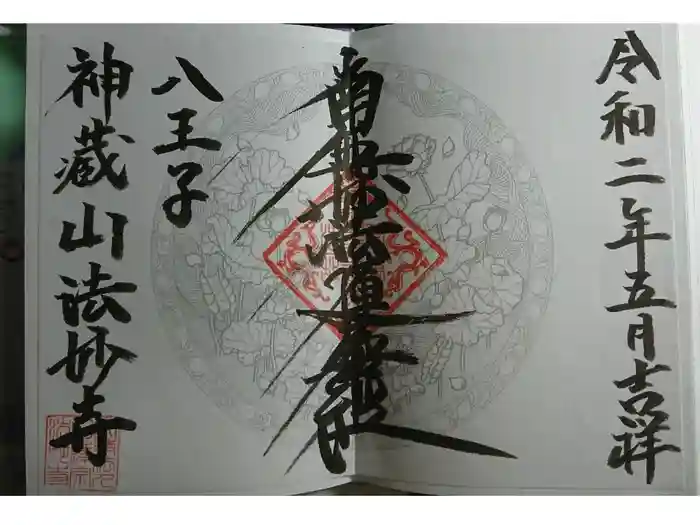 令和二年五月吉祥
南無妙法蓮華経
八王子
神蔵山法妙寺